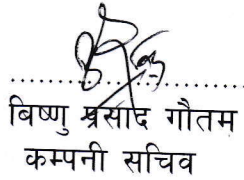 बिष्णु प्रसाद गौतम
कम्पनी सचिव